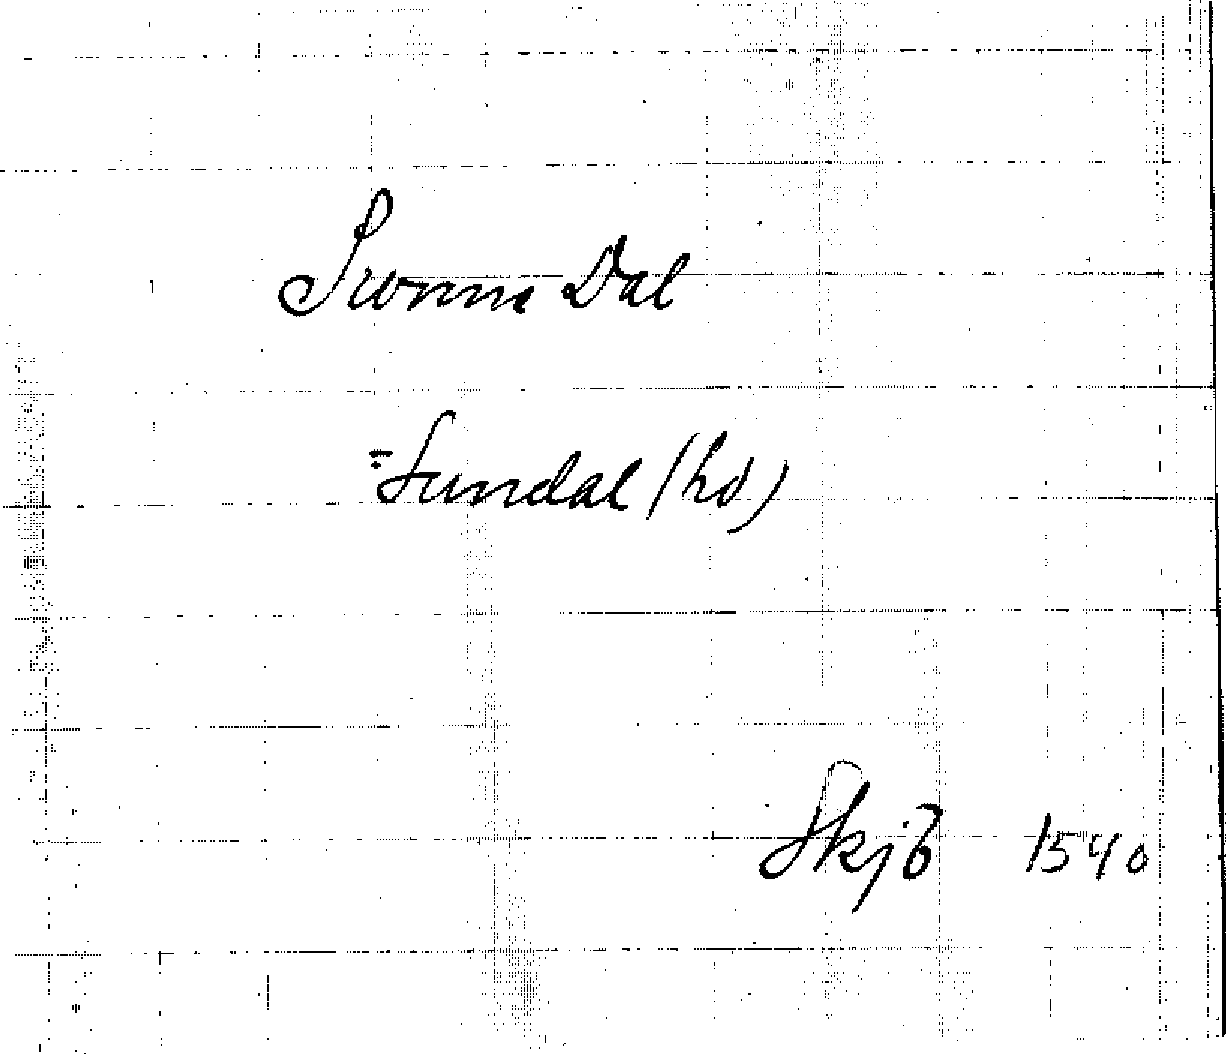 Swnm Dal
= Sundal (hd)
SkjB 1540